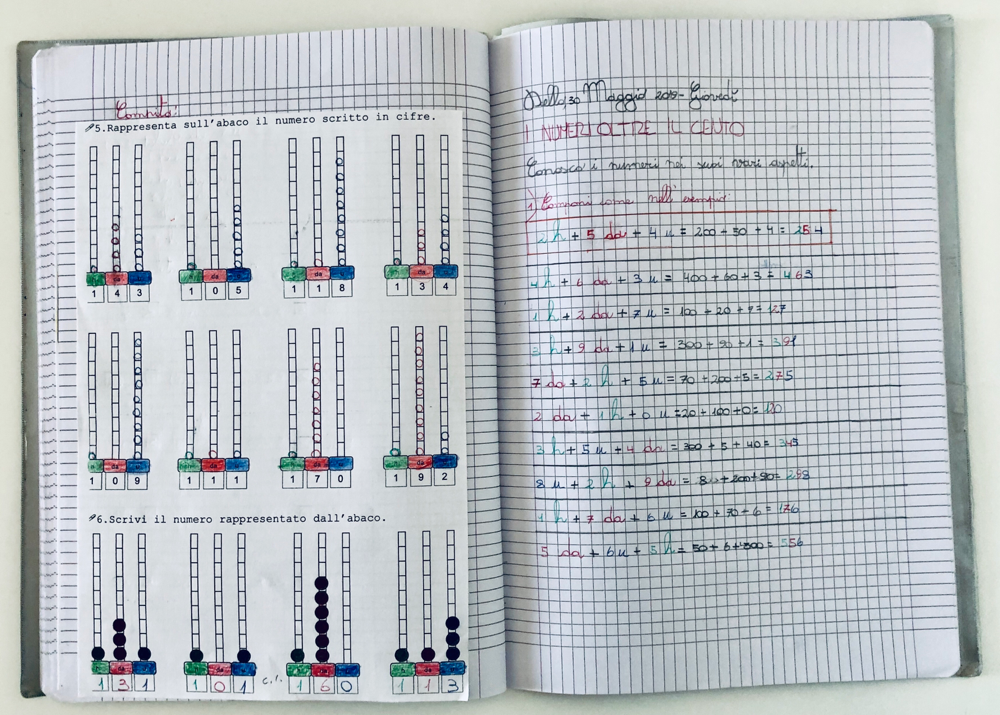 Compito:
#5.Rappresenta sull'abaco il numero scritto in cifre.
h da u h da u h da u h da u
1 4 3 1 0 5 1 1 8 1 3 4
h da u h da u h da u h da u
1 0 9 1 1 1 1 7 0 1 9 2
#6.Scrivi il numero rappresentato dall'abaco.
1 3 1 1 0 1 c.l. 1 6 0 1 1 3
Dello 30 Maggio 2019 - Giovedì
I NUMERI OLTRE IL CENTO
Conosco i numeri nei suoi vari aspetti.
1) Componi come nell'esempio:
2 h + 5 da + 4 u = 200 + 50 + 4 = 254
4 h + 6 da + 3 u = 400 + 60 + 3 = 463
1 h + 2 da + 7 u = 100 + 20 + 7 = 127
3 h + 9 da + 1 u = 300 + 90 + 1 = 391
7 da + 2 h + 5 u = 70 + 200 + 5 = 275
2 da + 1 h + 0 u = 20 + 100 + 0 = 120
3 h + 5 u + 4 da = 300 + 5 + 40 = 345
8 u + 2 h + 9 da = 8 + 200 + 90 = 298
1 h + 7 da + 6 u = 100 + 70 + 6 = 176
5 da + 6 u + 5 h = 50 + 6 + 500 = 556